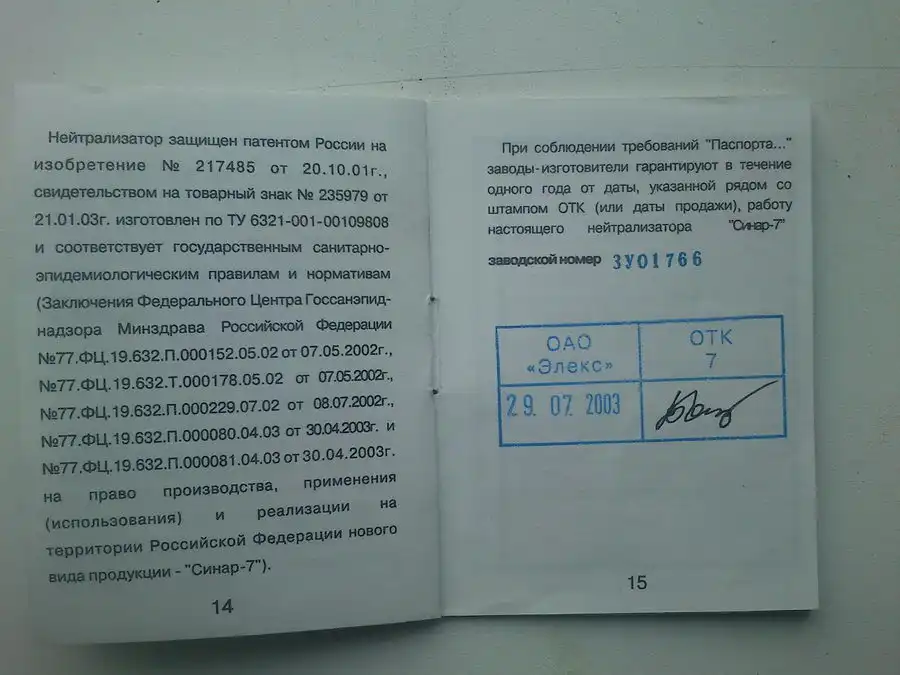 Нейтрализатор защищен патентом России на
изобретение № 217485 от 20.10.01г.,
свидетельством на товарный знак № 235979 от
21.01.03г. изготовлен по ТУ 6321-001-00109808
и соответствует государственным санитарно-
эпидемиологическим правилам и нормативам
(Заключения Федерального Центра Госсанэпид-
надзора Минздрава Российской Федерации
№77.ФЦ.19.632.П.000152.05.02 от 07.05.2002г.,
№77.ФЦ.19.632.Т.000178.05.02 от 07.05.2002г.,
№77.ФЦ.19.632.П.000229.07.02 от 08.07.2002г.,
№77.ФЦ.19.632.П.000080.04.03 от 30.04.2003г. и
№77.ФЦ.19.632.П.000081.04.03 от 30.04.2003г.
на право производства, применения
(использования) и реализации на
территории Российской Федерации нового
вида продукции - "Синар-7").
14
При соблюдении требований "Паспорта..."
заводы-изготовители гарантируют в течение
одного года от даты, указанной рядом со
штампом ОТК (или даты продажи), работу
настоящего нейтрализатора "Синар-7"
заводской номер 3У01766
ОАО
«Элекс»
ОТК
7
29. 07. 2003
15